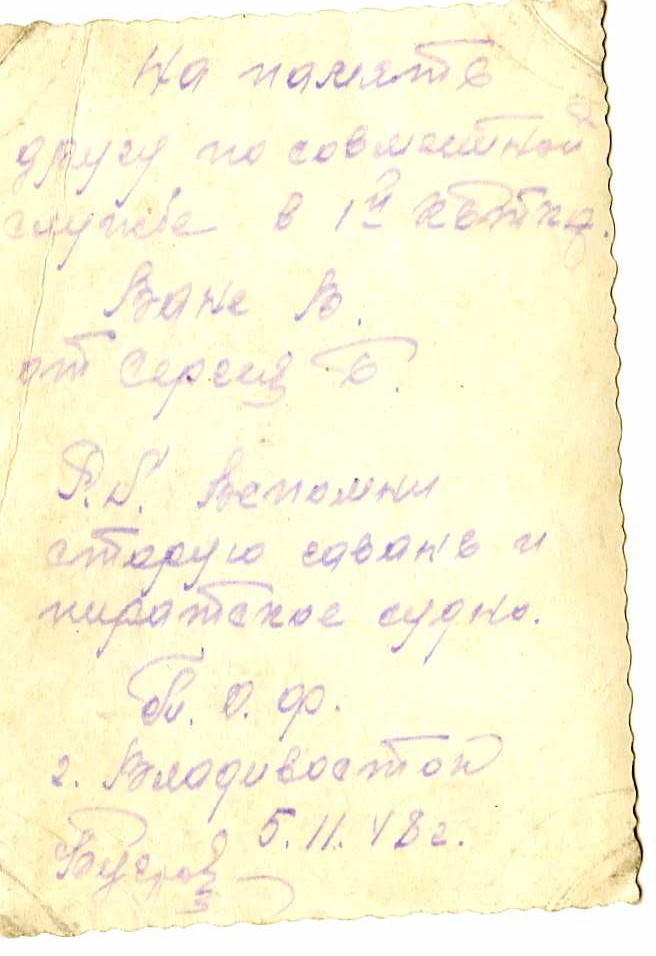 На память
другу по совместной
службе в 1й
Ване В.
от Сергея Б.
P.S. Вспомни
старую гавань и
пиратское судно.
о. ф.
г. Владивосток
5.11.48 г.